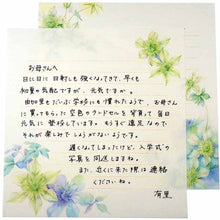 お母さんへ
日に日に日射しも強くなってきて、早くも
初夏の気配ですが、元気ですか。
由加里もだいぶ学校にも慣れたようで、お母さん
に買ってもらった空色のランドセルを背負って毎日
元気に登校しています。もうすぐ遠足なので
それが楽しみでしょうがないようです。
遅くなってしまったけど、入学式の
写真を同送しますね。
また、近くに来た際は連絡
くださいね。
有里